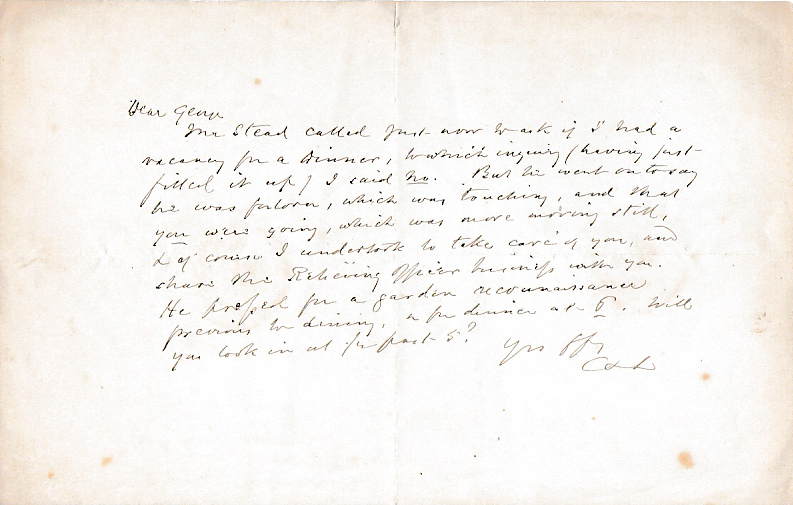 Dear George
Mr Stead called just now to ask if I had a
vacancy for a dinner, to which inquiry (having just
filled it up) I said no. But he went on to say
he was forlorn, which was touching, and that
you were going, which was more moving still,
& of course I undertook to take care of you, and
share the Relieving Officer business with you.
He pressed for a garden reconnaissance
previous to dining, & for dinner at 6. Will
you look in at ½ past 5?
Yrs